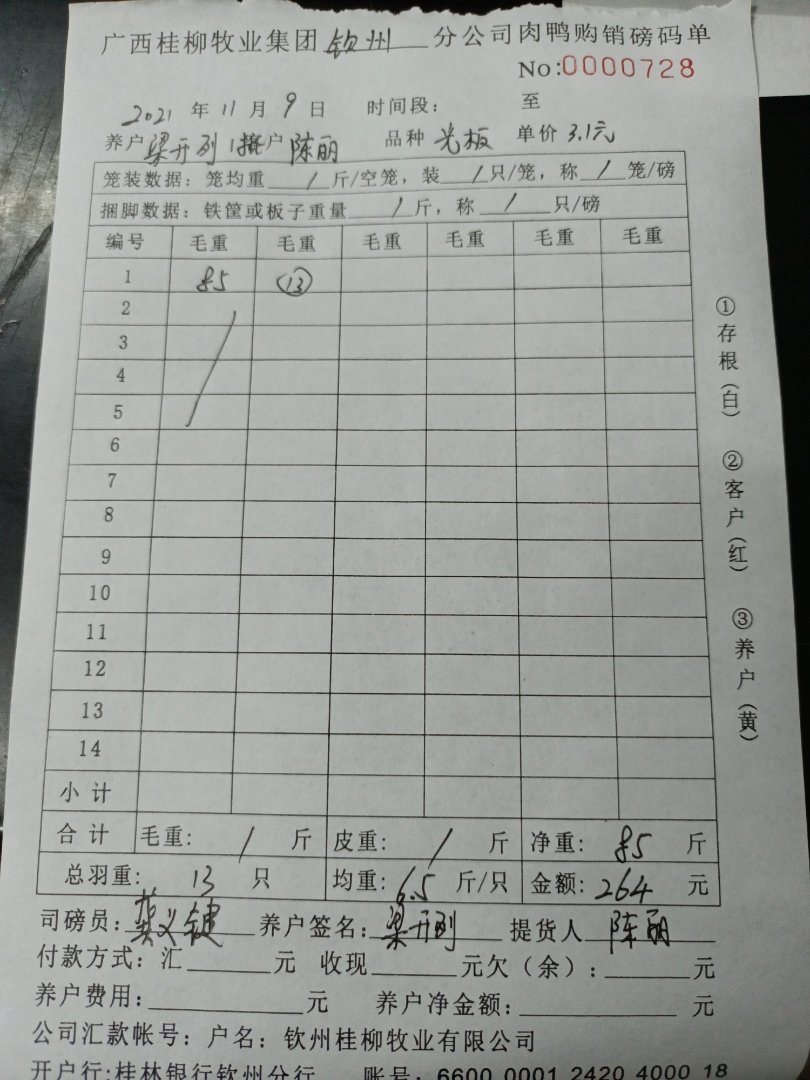 广西桂柳牧业集团 钦州 分公司肉鸭购销磅码单
No:0000728
2021 年 11 月 9 日 时间段: 至
养户 梁开列 户 陈丽 品种 光板 单价 3.1元
笼装数据: 笼均重 / 斤/空笼, 装 / 只/笼, 称 / 笼/磅
捆脚数据: 铁筐或板子重量 / 斤, 称 / 只/磅
编号 毛重 毛重 毛重 毛重 毛重 毛重
1 85 ⑬
2
3
4
5
6
7
8
9
10
11
12
13
14
小计
合计 毛重: / 斤 皮重: / 斤 净重: 85 斤
总羽重: 13 只 均重: 6.5 斤/只 金额: 264 元
司磅员: 义键 养户签名: 梁开列 提货人 陈丽
付款方式: 汇 元 收现 元欠(余): 元
养户费用: 元 养户净金额: 元
公司汇款帐号: 户名: 钦州桂柳牧业有限公司
开户行:桂林银行钦州分行 账号: 6600 0001 2420 4000 18
①存根(白) ②客户(红) ③养户(黄)